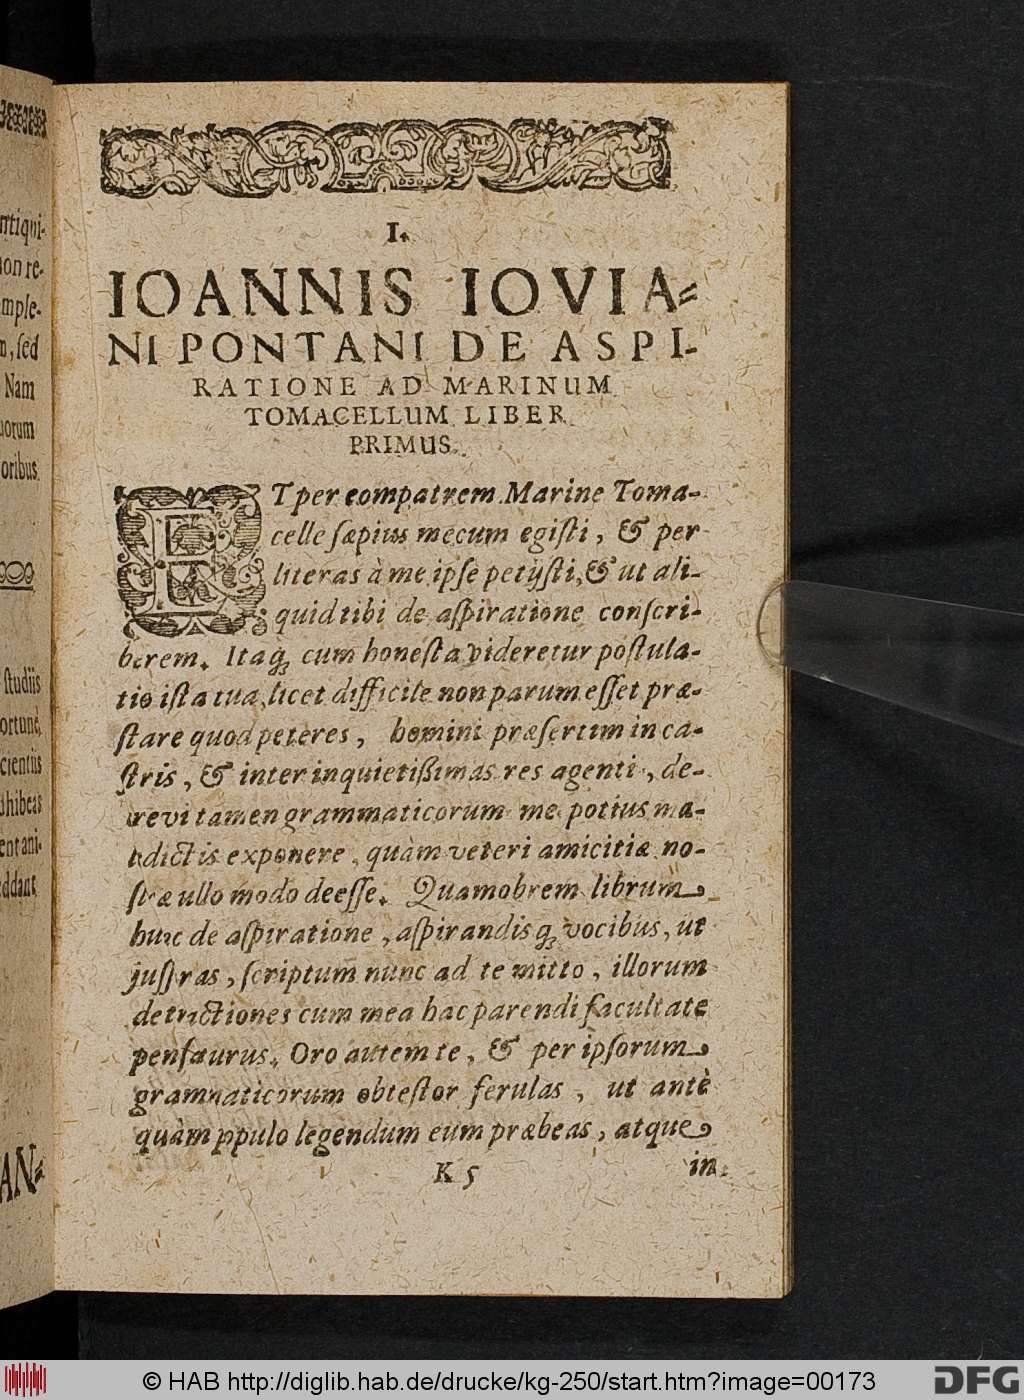 ntiqui-
non re-
mple-
n, ſed
Nam
uorum
oribus.
ſtudiis
ortunè,
cientius
ohibeas
entani-
eddant
AN=
I.
IOANNIS IOVIA=
NI PONTANI DE ASPI-
RATIONE AD MARINUM
TOMACELLUM LIBER
PRIMUS.
ET per compatrem Marine Toma-
celle ſæpius mecum egiſti, & per
literas à me ipſe petijſti, & ut ali-
quid tibi de aſpiratione conſcri-
berem. Itaq; cum honeſta videretur poſtula-
tio iſta tua, licet difficile non parum eſſet præ-
ſtare quod peteres, homini præſertim in ca-
ſtris, & inter inquietißimas res agenti, de-
crevi tamen grammaticorum me potius ma-
ledictis exponere, quàm veteri amicitiæ no-
ſtræ ullo modo deeſſe. Quamobrem librum
hunc de aſpiratione, aſpirandisq; vocibus, ut
juſſeras, ſcriptum nunc ad te mitto, illorum
detractiones cum mea hac parendi facultate
penſaturus. Oro autem te, & per ipſorum
grammaticorum obteſtor ferulas, ut antè
quàm ppulo legendum eum præbeas, atque
K 5
in
© HAB http://diglib.hab.de/drucke/kg-250/start.htm?image=00173
DFG